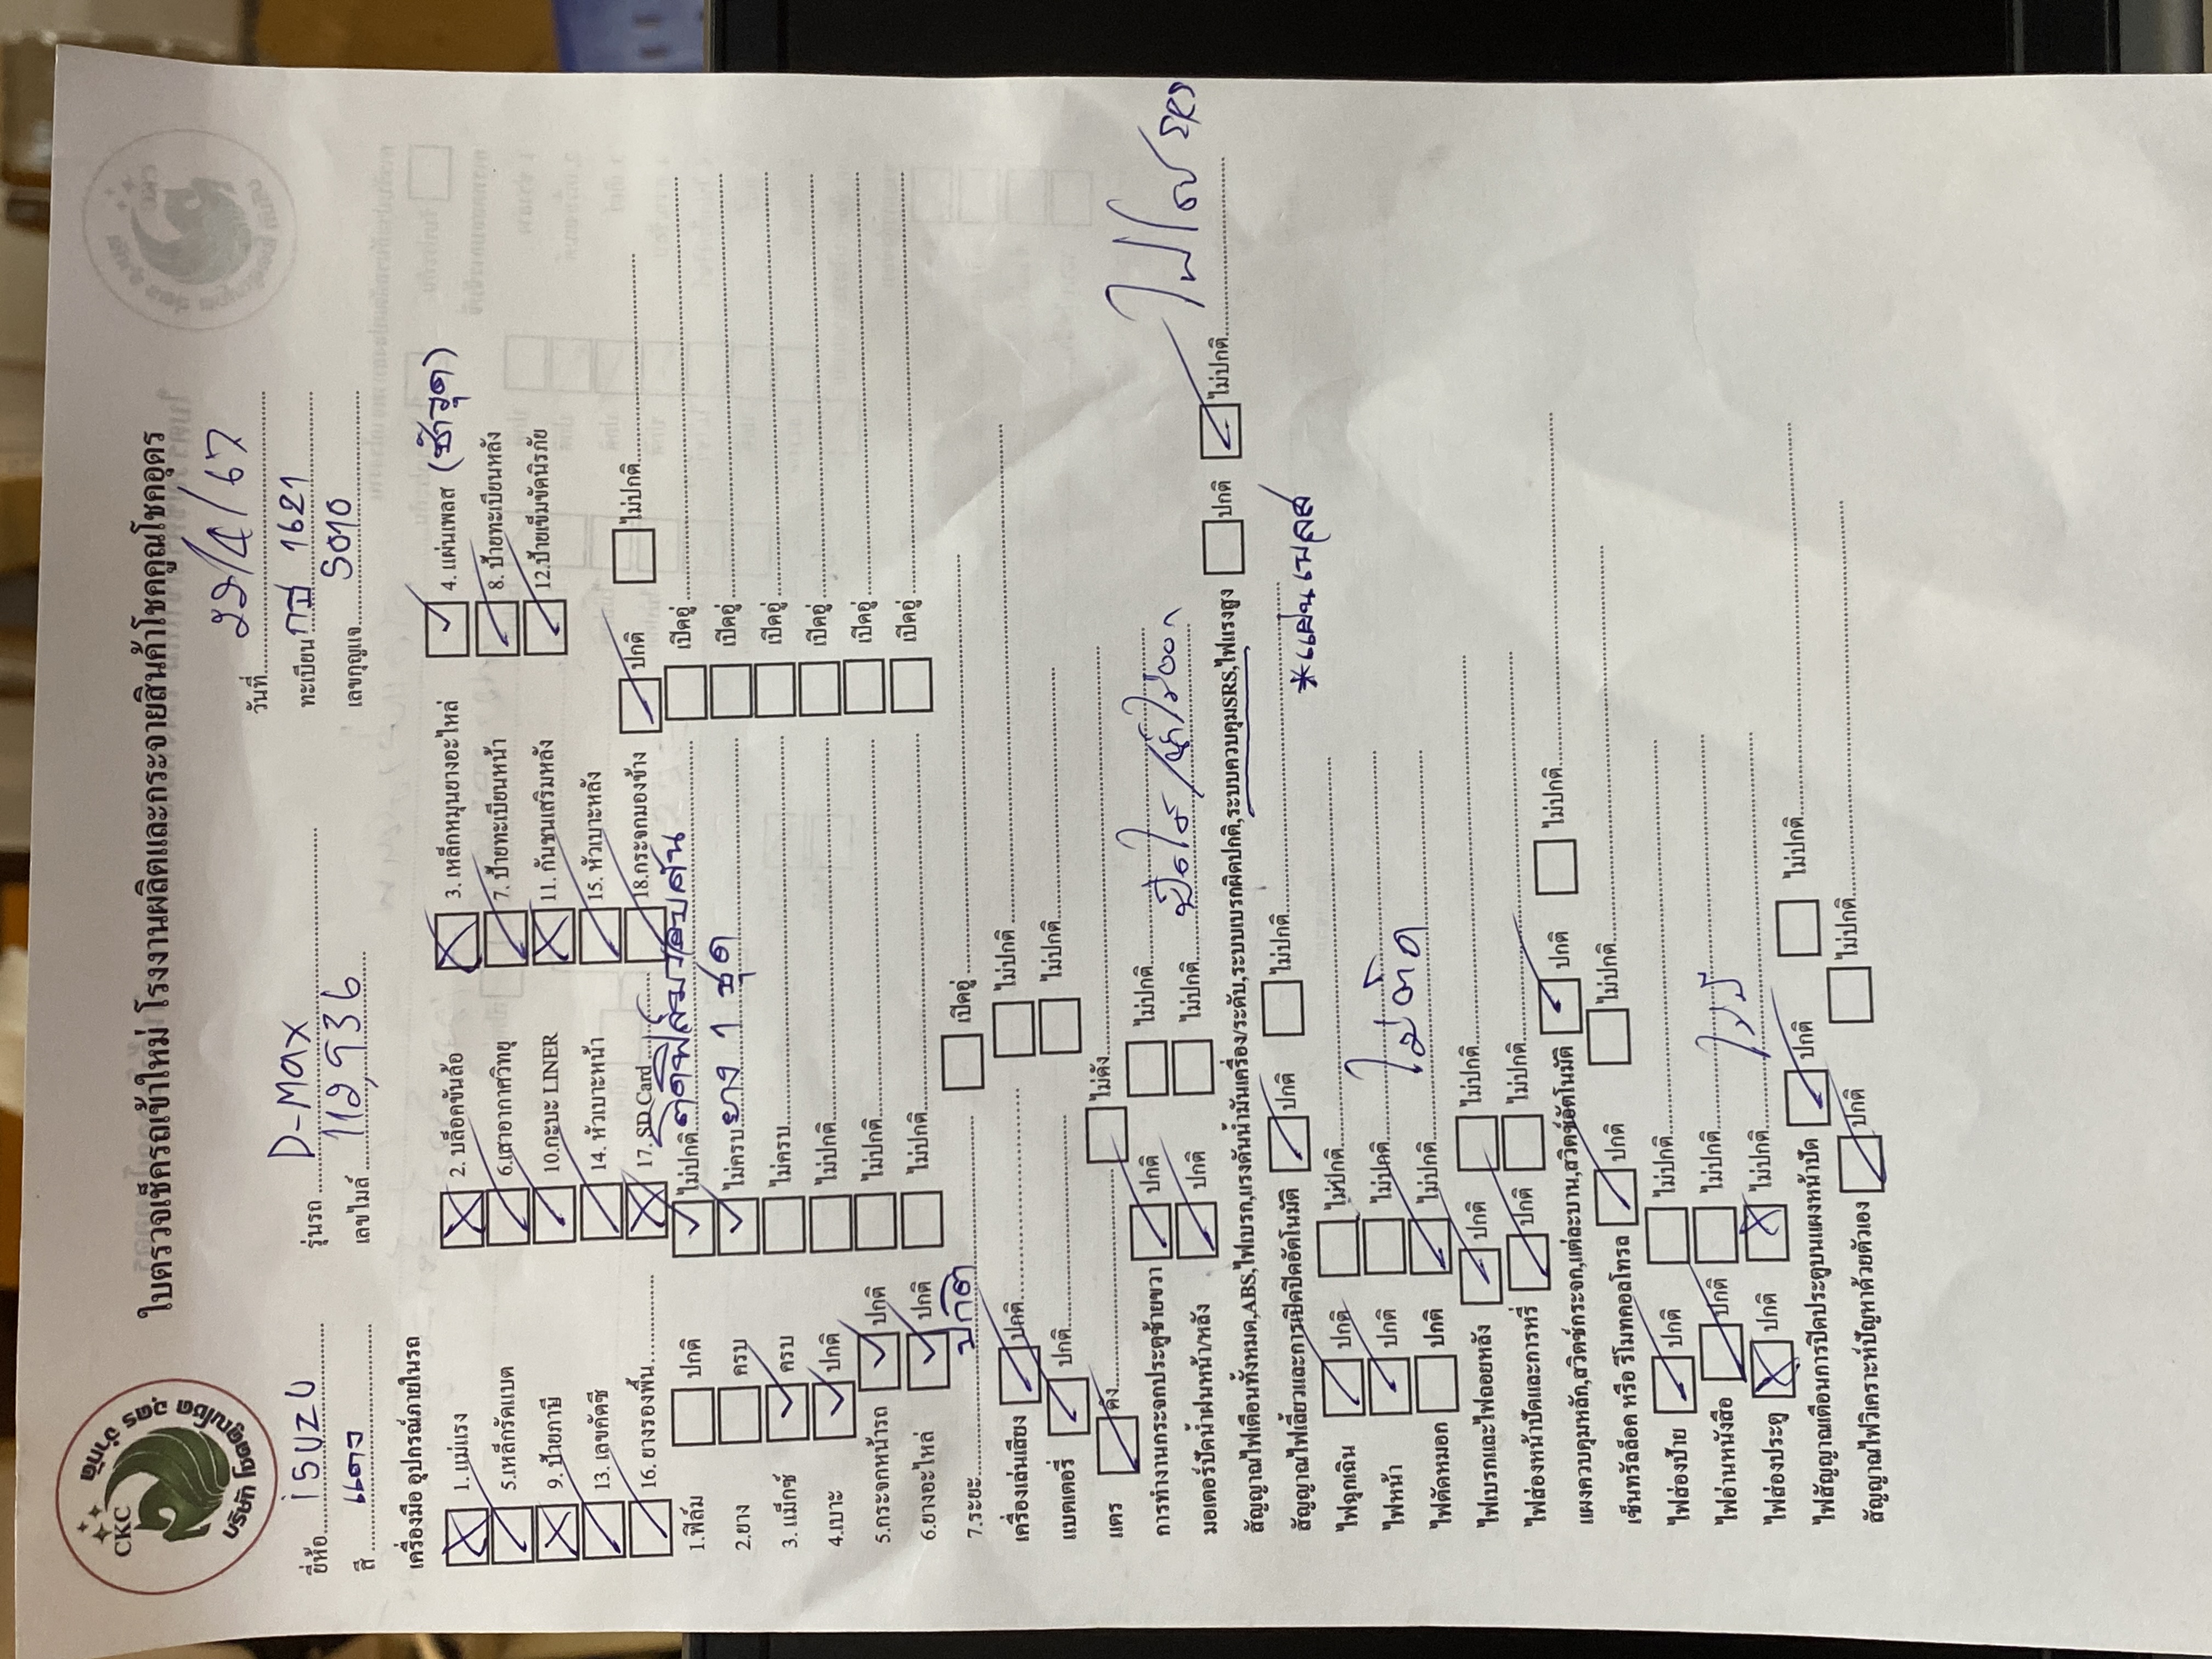 CKC
บริษัท โชคคูณโชค อุดร จำกัด
ใบตรวจเช็ครถเข้าใหม่ โรงงานผลิตและกระจายสินค้าโชคคูณโชคอุดร
วันที่ 22/4/67
ยี่ห้อ isuzu รุ่นรถ D-Max ทะเบียน 1621
สี แดง เลขไมล์ 112,936 เลขกุญแจ 5010
เครื่องมือ อุปกรณ์ภายในรถ
1. แม่แรง 2. บล็อคขันล้อ 3. เหล็กหมุนยางอะไหล่ 4. แผ่นเพลส (ชำรุด)
5.เหล็กรัดแบต 6.เสาอากาศวิทยุ 7. ป้ายทะเบียนหน้า 8. ป้ายทะเบียนหลัง
9. ป้ายภาษี 10.กะบะ LINER 11. กันชนเสริมหลัง 12.ป้ายเข็มขัดนิรภัย
13. เลขคัตซี 14. หัวเบาะหน้า 15. หัวเบาะหลัง
16. ยางรองพื้น 17. SD Card 18.กระจกมองข้าง ปกติ ไม่ปกติ
1.ฟิล์ม ปกติ ไม่ปกติ ติดฟิล์มรอบคัน เปิดอู่
2.ยาง ครบ ไม่ครบ ยาง 1 ชุด เปิดอู่
3. แม็กซ์ ครบ ไม่ครบ เปิดอู่
4.เบาะ ปกติ ไม่ปกติ เปิดอู่
5.กระจกหน้ารถ ปกติ ไม่ปกติ เปิดอู่
6.ยางอะไหล่ ปกติ ไม่ปกติ เปิดอู่
7.ระยะ ปกติ เปิดอู่
เครื่องเล่นเสียง ปกติ ไม่ปกติ
แบตเตอรี่ ปกติ ไม่ปกติ
แตร ดัง ไม่ดัง
การทำงานกระจกประตูซ้ายขวา ปกติ ไม่ปกติ
มอเตอร์ปัดน้ำฝนหน้า/หลัง ปกติ ไม่ปกติ
สัญญาณไฟเตือนทั้งหมด,ABS,ไฟเบรก,แรงดันน้ำมันเครื่อง/ระดับ,ระบบเบรกผิดปกติ,ระบบควบคุมSRS,ไฟแรงสูง ปกติ ไม่ปกติ
สัญญาณไฟเลี้ยวและการเปิดปิดอัตโนมัติ ปกติ ไม่ปกติ *แผ่นเพลส
ไฟฉุกเฉิน ปกติ ไม่ปกติ
ไฟหน้า ปกติ ไม่ปกติ
ไฟตัดหมอก ปกติ ไม่ปกติ ไม่ติด
ไฟเบรกและไฟถอยหลัง ปกติ ไม่ปกติ
ไฟส่องหน้าปัดและการหรี่ ปกติ ไม่ปกติ
แผงควบคุมหลัก,สวิตช์กระจก,แต่ละบาน,สวิตซ์อัตโนมัติ ปกติ ไม่ปกติ
เซ็นทรัลล็อค หรือ รีโมทคอลโทรล ปกติ ไม่ปกติ
ไฟส่องป้าย ปกติ ไม่ปกติ
ไฟอ่านหนังสือ ปกติ ไม่ปกติ
ไฟส่องประตู ปกติ ไม่ปกติ ไม่มี
ไฟสัญญาณเตือนการปิดประตูบนแผงหน้าปัด ปกติ ไม่ปกติ
สัญญาณไฟวิเคราะห์ปัญหาด้วยตัวเอง ปกติ ไม่ปกติ